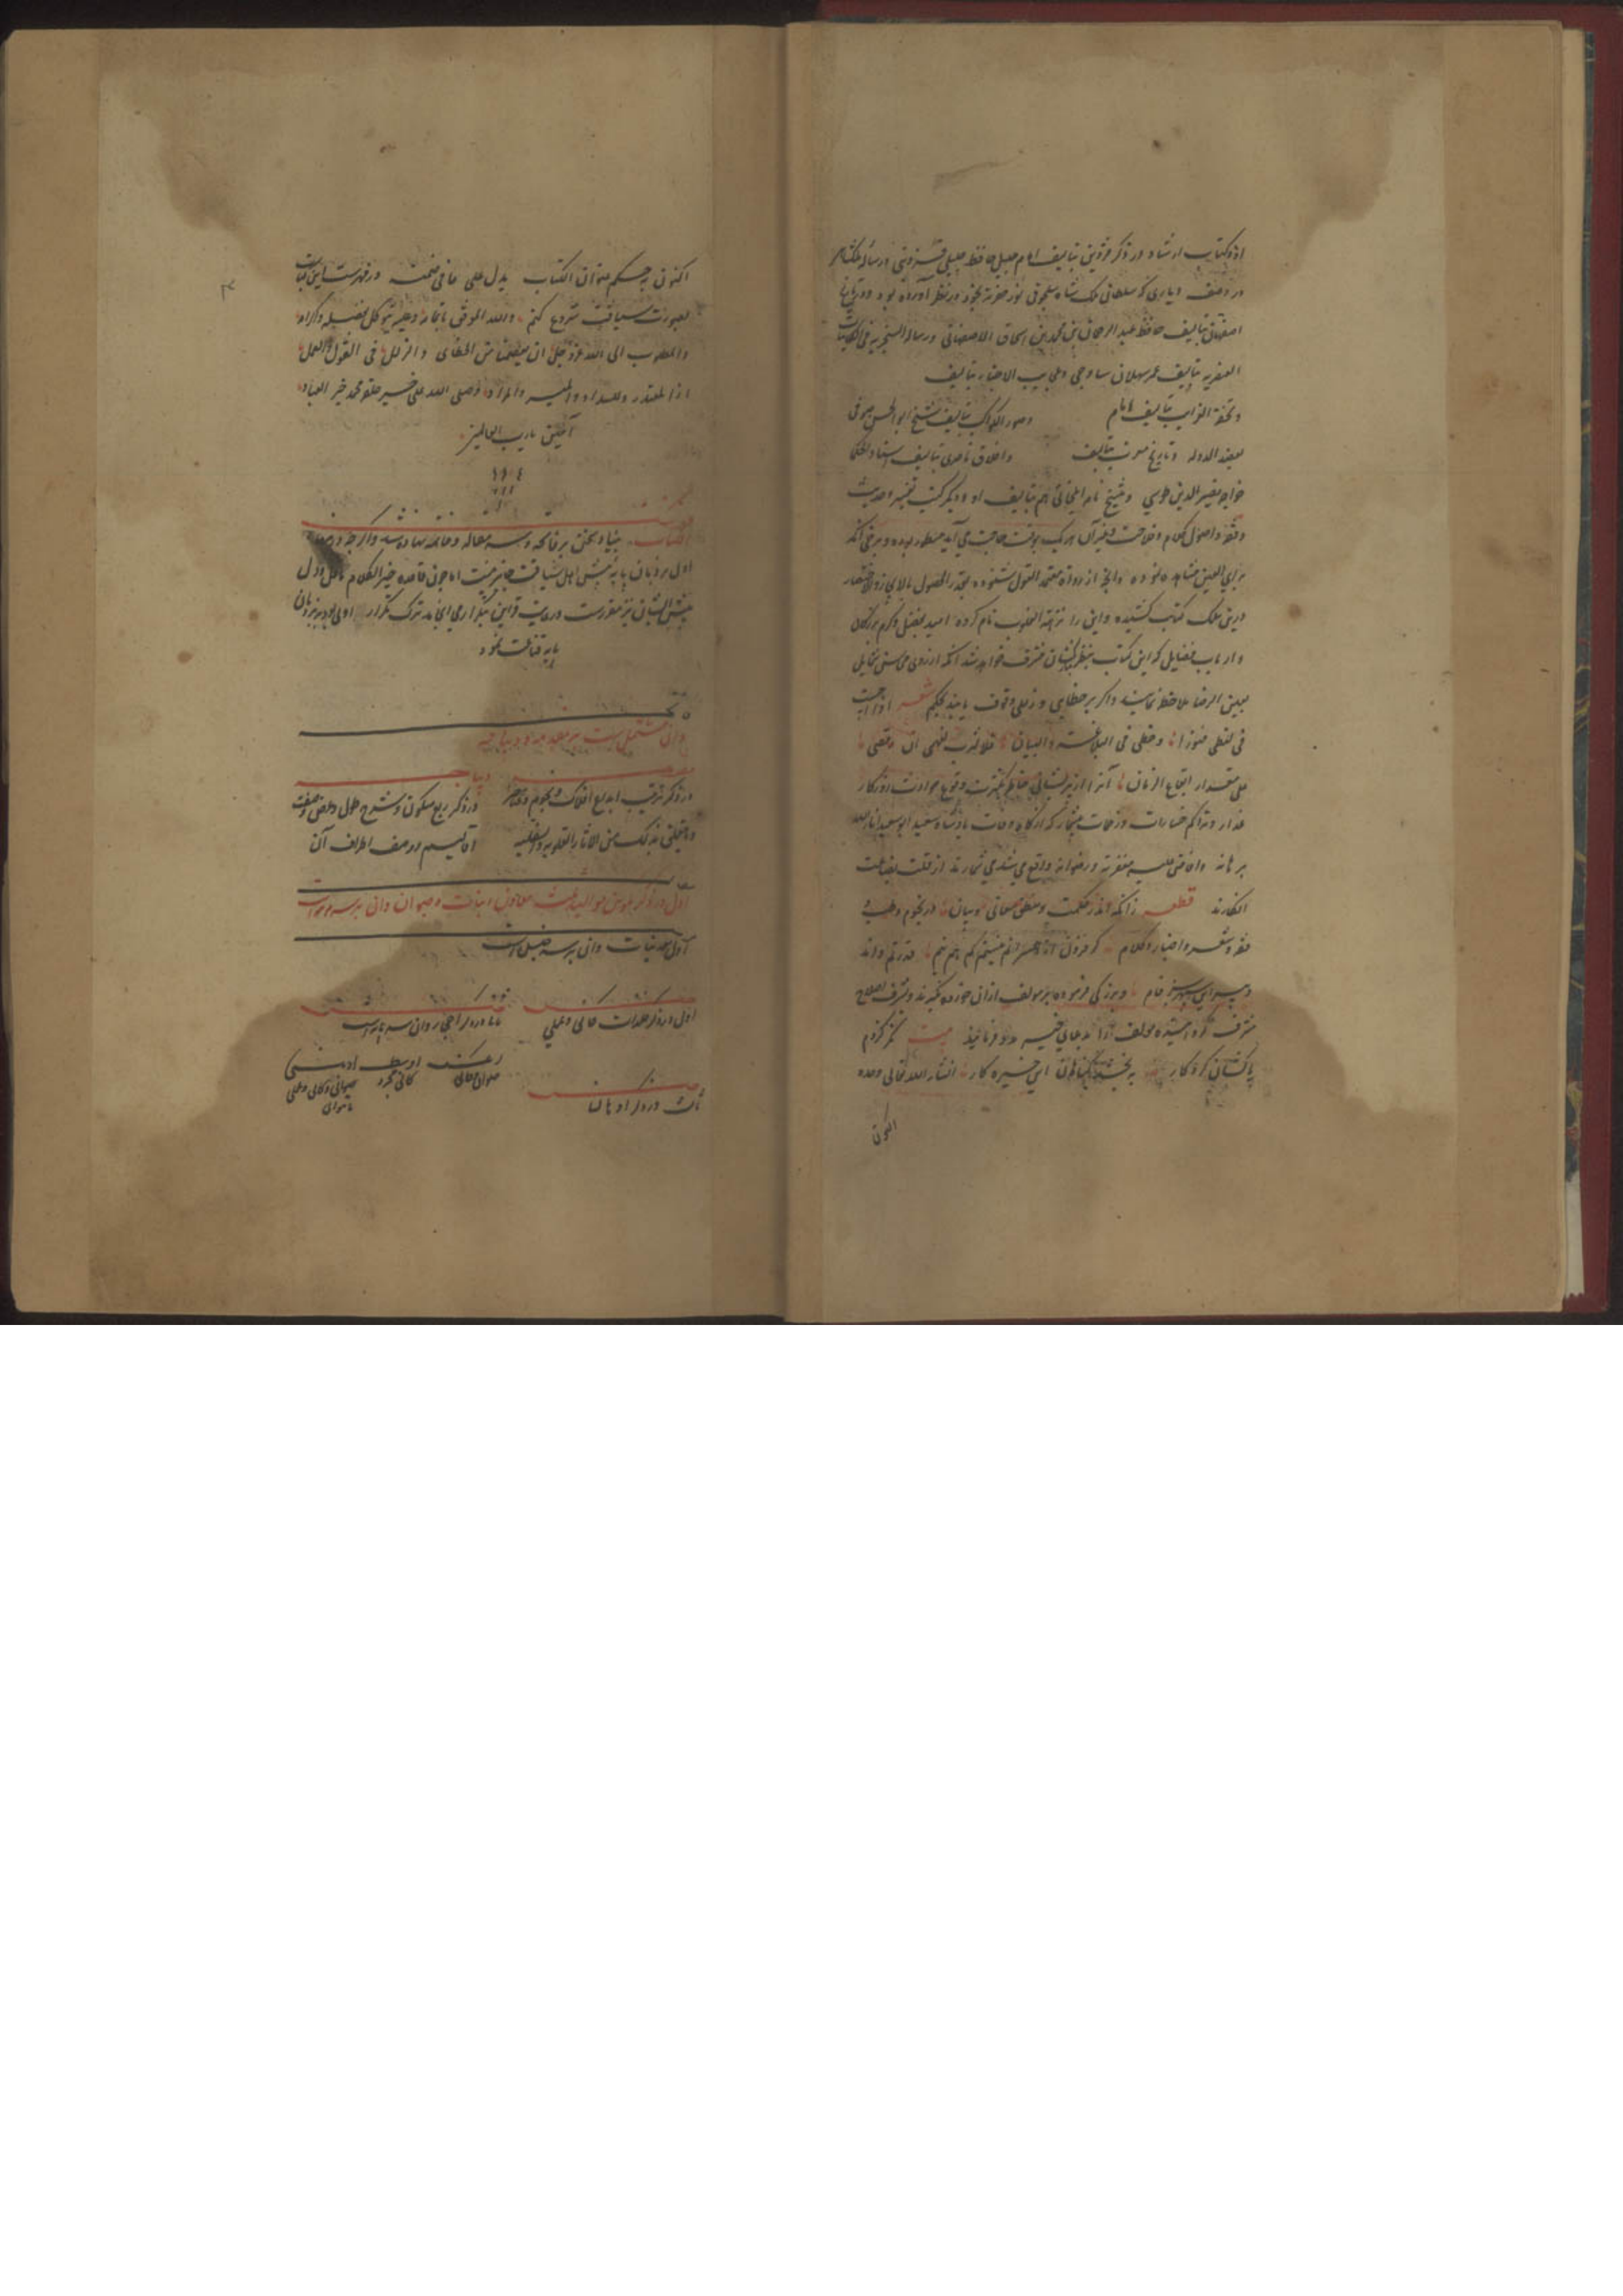 او و کتاب ارشاد در ذکر قزوین تالیف امام جلیل حافظ خلیلی قزوینی و رساله ملکشاهی
در وصف دیاری که سلطان ملک شاه سلجوقی نور حضرته بخود در نظر آورده بود و تاریخ
اصفهان تالیف حافظ عبد الرحمان بن محمد بن اسحاق الاصفهانی و رساله السنجریه فی الکاینات
العنصریه تالیف عمر سهلان ساوجی و عجایب الاخبار تالیف
و تحفة الغرایب تالیف امام وصور الکواکب تالیف شیخ ابو الحسن صوفی
لعضد الدوله و تاریخ مغرب تالیف و اخلاق ناصری تالیف استاد الحکما
خواجه نصیر الدین طوسی و تنسیخ نامه ایلخانی هم تالیف او و دیگر کتب تفسیر و حدیث
و فقه و اصول کلام و فلاحت و غیر آن هر یک بوقت حاجت می آید منظور بوده و برخی آنکه
برای العین مشاهده نموده و آنچه از رواة معتمد القول شنوده بقدر الحصول بالایجاز والاختصار
درین سلک کتابت کشیده و این را نزهة القلوب نام کرده امید بفضل و کرم بزرگان
و ارباب فضایل که این کتاب بنظر ایشان مشرف خواهد شد آنکه از روی محاسن شمایل
بعین الرضا ملاحظه نمایند و اگر بر خطایی و زللی وقوف یابند بحکم شعر اذا احسست
فی لفظی فتورا و خطی فی البلاغة والبیان فلا ترتب لفهمی ان رقصی
علی مقدار ایقاع الزمان آنرا از پریشانی خاطر بکثرت وقوع حوادث روزگار
غدار و تراکم خسارات و زحمات بیشمار که از گاه وفات پادشاه سعید ابو سعید انار الله
برهانه و افاض علیه مغفرته و رضوانه واقع می شد می شمارند از قلت بضاعت
انگارند قطعه زانکه اندر حکمت و منطق معانی و بیان در نجوم و طب و
فقه و شعر و اخبار و کلام گر فزون از اهل عصرم نیستم کم هم نیم قدرتم داند
دبیر این سپهر سبز فام و بزرگی فرموده بر مولف ازان خرده نگیرند و بشرف اصلاح
مشرف گردانیده مولف را بدعای خیر مدد فرمایند بیت مگر کردم
پاکشان کردگار ببخشد گناهان این خیره کار انشاء الله تعالی وحده
اکنون
اکنون بحکم عنوان الکتاب یدل علی ما فی ضمنه در فهرست این کتاب
بصورت سیاقت شروع کنم والله الموفق باتمامه و علیه نتوکل بفضله و اکرامه
والمطلوب الی الله عز و جل ان یعصمنا من الخطای والزلل فی القول والعمل
اذا لمقتدر و للسداد و المیسر والمراد و صلی الله علی خیر خلقه محمد خیر العباد
آمین یا رب العالمین
فهرست
الکتاب بنیاد سخن بر فاتحه و سه مقاله و خاتمه نهاده شد و اگر چه در صفحه
اول بر زبان پایه پیش اهل سیاقت جایز نیست اما چون قاعده خیر الکلام ما قل و دل
پیش ایشان نیز مقررست و رعایت قوانین بتکرار می انجامد ترک تکرار اولی بود بر زبان
پایه قناعت نمود
فاتحه
و آن مشتمل است بر مقدمه و دیباجه
مقدمه
دیباجه
در ذکر ترتیب ابداع افلاک و نجوم و عناصر
در ذکر ربع مسکون و شرح طول و عرض و صفت
و ما یتعلق بذلک من الاثار العلویه والسفلیه
اقالیم و وصف اطراف آن
مقاله
اول در ذکر تکوین موالید ثلث معادن و نبات و حیوان و آن بر سه مرتبه است
اول معدنیات و آن بر سه فصل است
اول در ذکر فلزات کانی و عملی
ثانیا در ذکر احجار و آن سه نوع است
اوسط
کانی مجرد
ثالث در ذکر ادهان